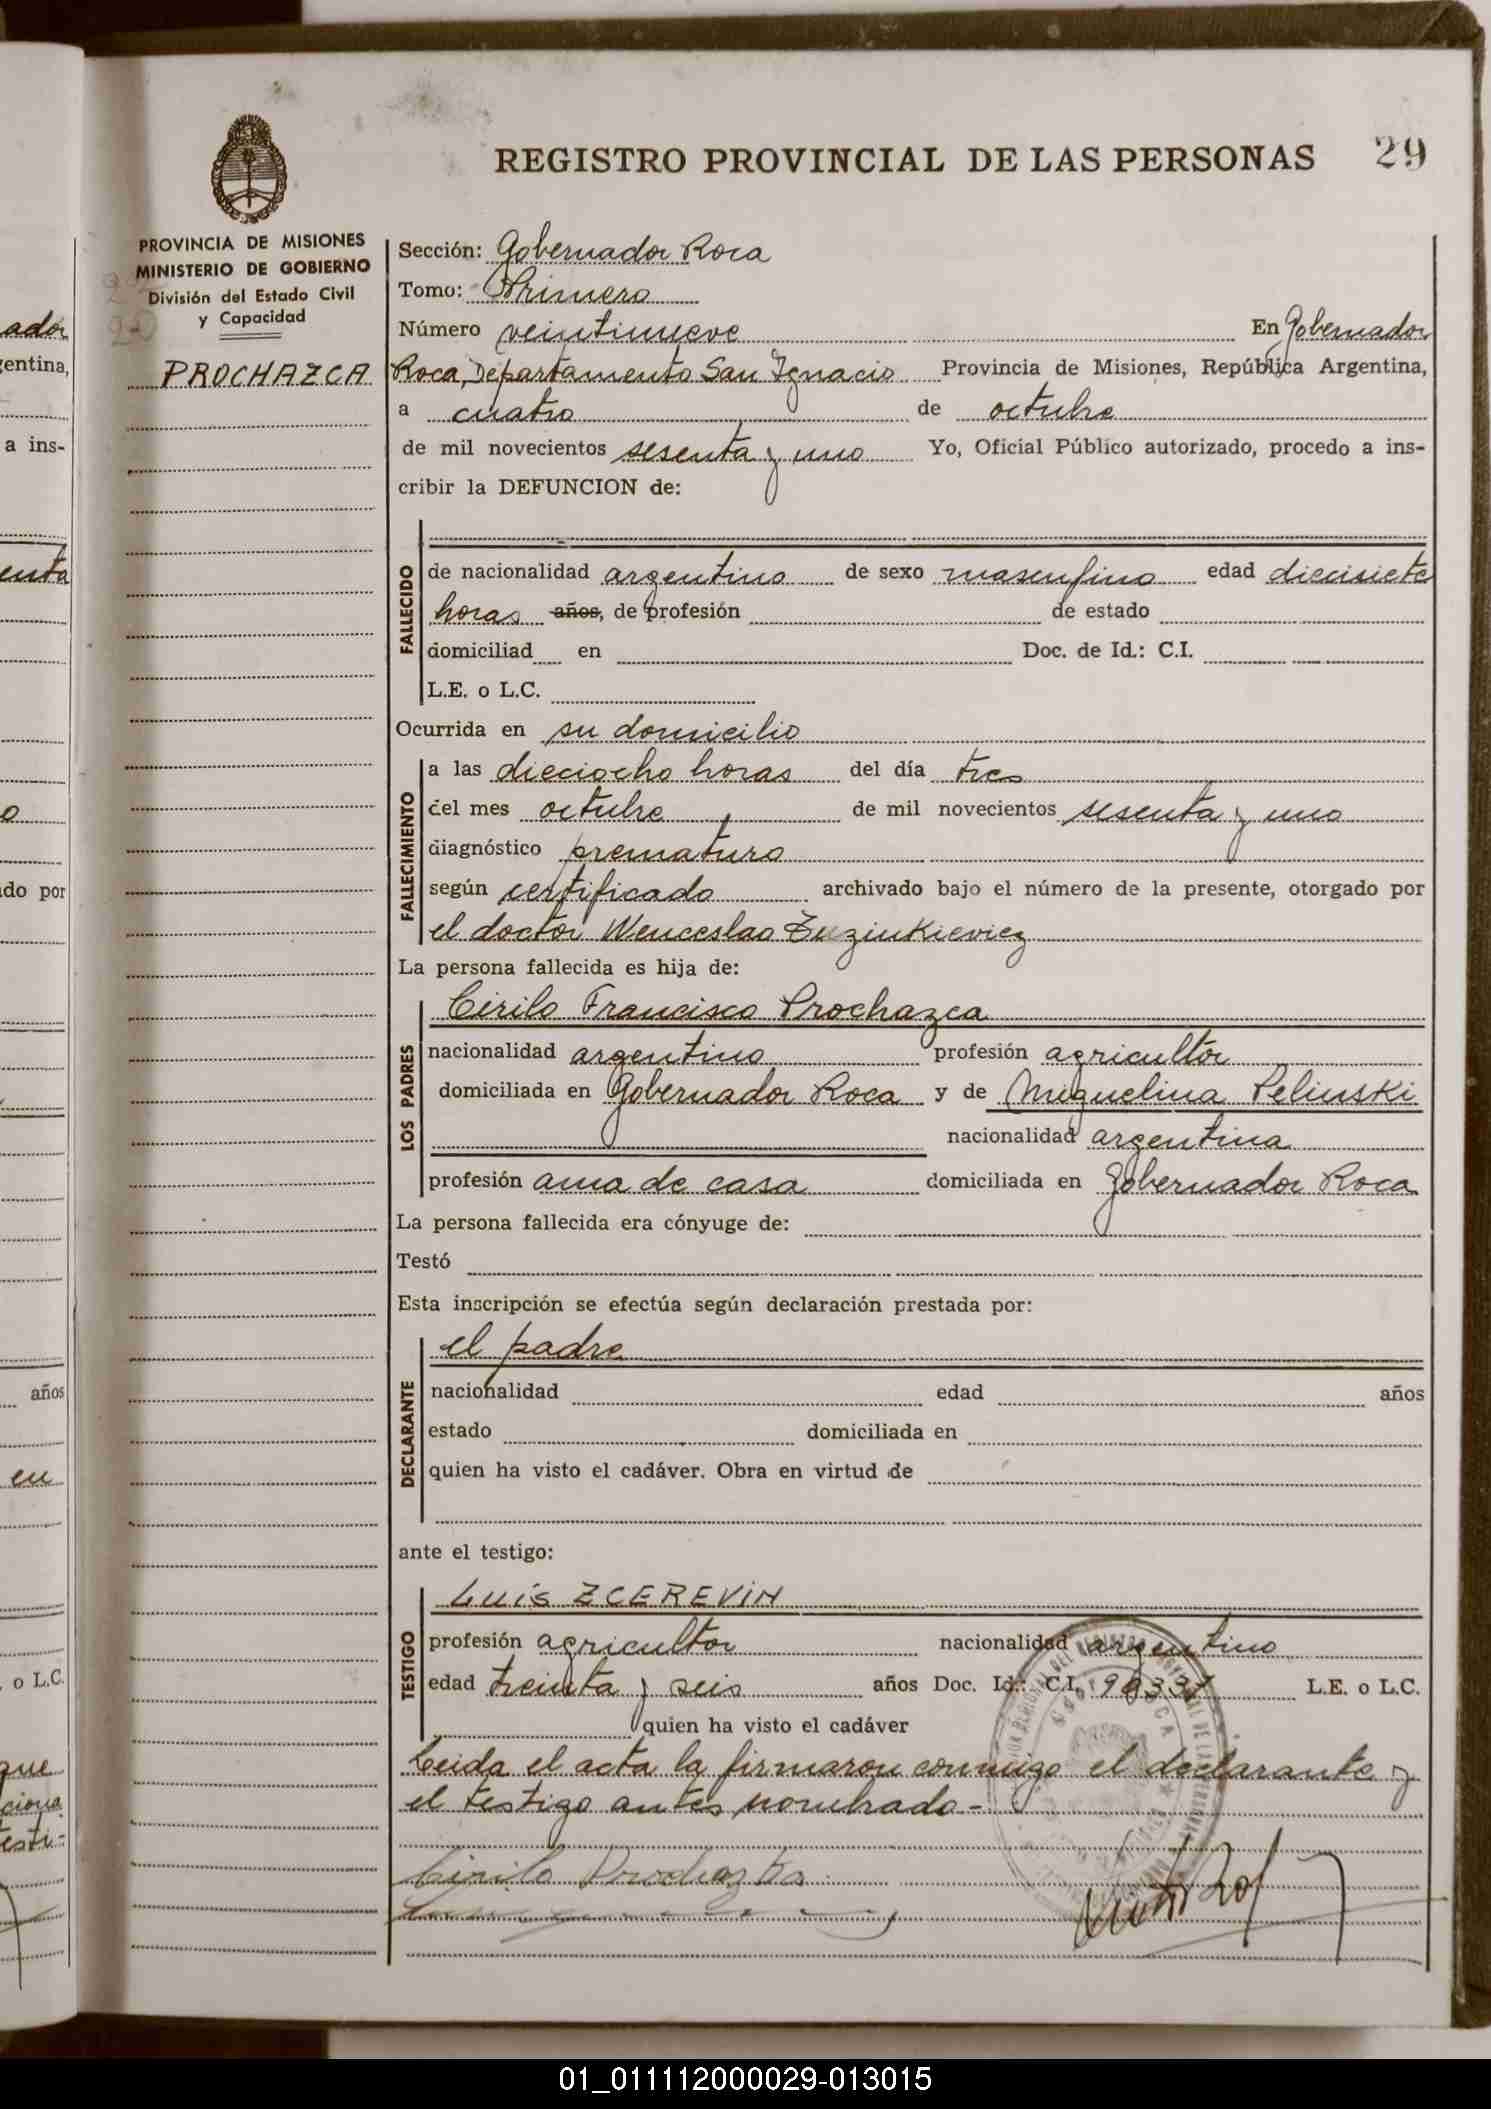 29
REGISTRO PROVINCIAL DE LAS PERSONAS
PROVINCIA DE MISIONES
MINISTERIO DE GOBIERNO
División del Estado Civil
y Capacidad
PROCHAZCA
Sección: Gobernador Roca
Tomo: Primero
Número veintinueve En Gobernador
Roca, Departamento San Ignacio Provincia de Misiones, República Argentina,
a cuatro de octubre
de mil novecientos sesenta y uno Yo, Oficial Público autorizado, procedo a ins-
cribir la DEFUNCION de:
FALLECIDO
de nacionalidad argentino de sexo masculino edad diecisiete
horas años, de profesión de estado
domiciliad en Doc. de Id.: C.I.
L.E. o L.C.
Ocurrida en su domicilio
FALLECIMIENTO
a las dieciocho horas del día tres
del mes octubre de mil novecientos sesenta y uno
diagnóstico prematuro
según certificado archivado bajo el número de la presente, otorgado por
el doctor Wenceslao Zuzinkieviez
La persona fallecida es hija de:
LOS PADRES
Cirilo Francisco Prochazca
nacionalidad argentino profesión agricultor
domiciliada en Gobernador Roca y de Miguelina Pelinski
nacionalidad argentina
profesión ama de casa domiciliada en Gobernador Roca
La persona fallecida era cónyuge de:
Testó
Esta inscripción se efectúa según declaración prestada por:
DECLARANTE
el padre
nacionalidad edad años
estado domiciliada en
quien ha visto el cadáver. Obra en virtud de
ante el testigo:
TESTIGO
LUIS ZCEREVIN
profesión agricultor nacionalidad argentino
edad treinta y seis años Doc. Id.: C.I. L.E. o L.C.
quien ha visto el cadáver
Leida el acta la firmaron conmigo el declarante y
el testigo antes nombrado-
Cirilo Prochazka
ador
entina,
a ins-
enta
o
do por
años
en
o L.C.
que
ciona
esti-
01_011112000029-013015